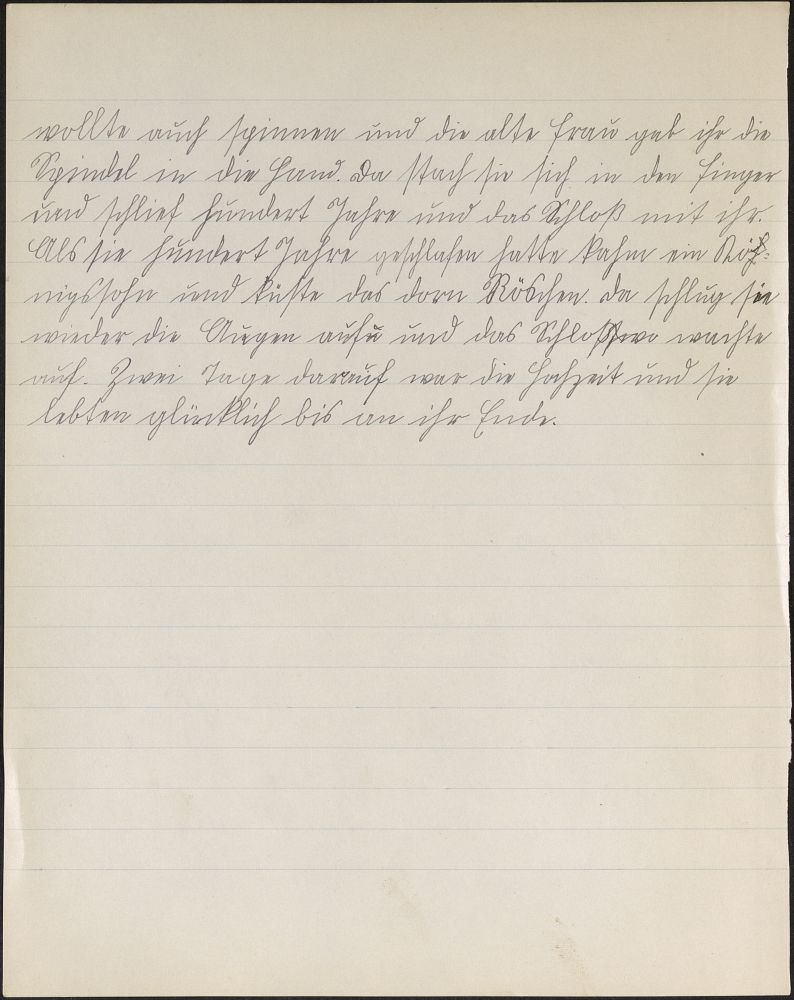 wollte auch spinnen und die alte Frau gab ihr die
Spindel in die Hand. Da stach sie sich in den Finger
und schlief hundert Jahre und das Schloß mit ihr.
Als sie hundert Jahre geschlafen hatte kahm ein Kö-
nigssohn und küßte das dorn Röschen. Da schlug sie
wieder die Augen auf und das Schloß wachte
auf. Zwei Tage darauf war die Hochzeit und sie
lebten glücklich bis an ihr Ende.